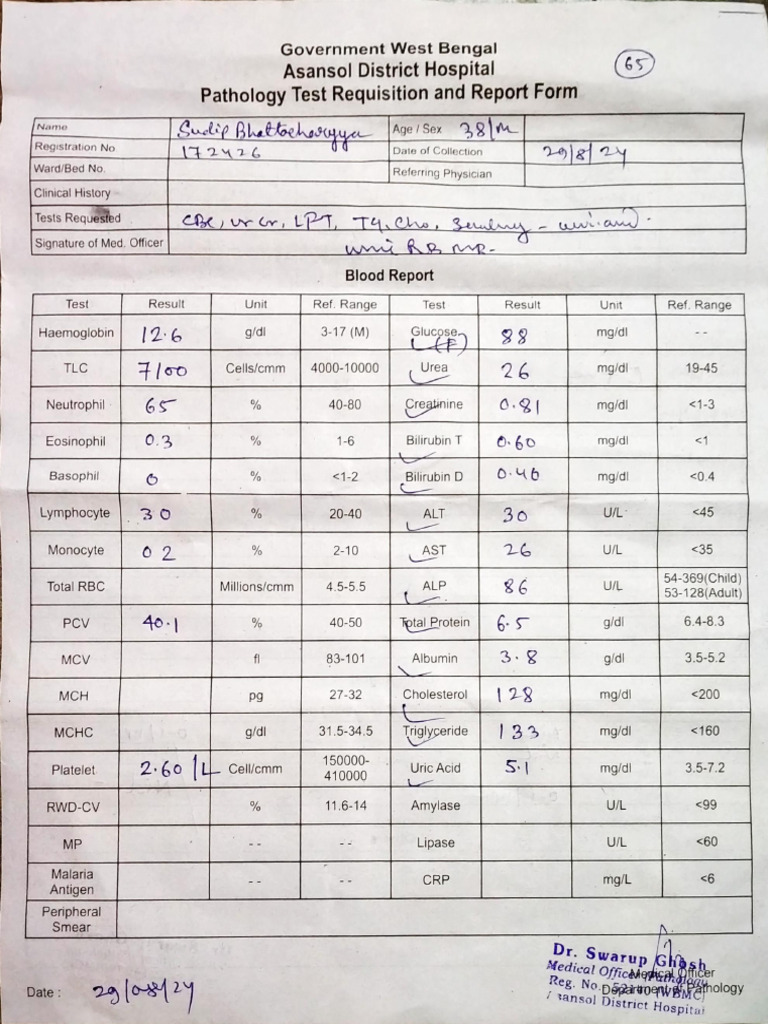 Government West Bengal
Asansol District Hospital
65
Pathology Test Requisition and Report Form
Name Sudip Bhattacharyya Age / Sex 38/M
Registration No 172426 Date of Collection 29/8/24
Ward/Bed No. Referring Physician
Clinical History
Tests Requested CBC, ur cr, LFT, TG, Cho,
Signature of Med. Officer
Blood Report
Test Result Unit Ref. Range Test Result Unit Ref. Range
Haemoglobin 12.6 g/dl 3-17 (M) Glucose (F) 88 mg/dl --
TLC 7100 Cells/cmm 4000-10000 Urea 26 mg/dl 19-45
Neutrophil 65 % 40-80 Creatinine 0.81 mg/dl <1-3
Eosinophil 0.3 % 1-6 Bilirubin T 0.60 mg/dl <1
Basophil 0 % <1-2 Bilirubin D 0.40 mg/dl <0.4
Lymphocyte 30 % 20-40 ALT 30 U/L <45
Monocyte 02 % 2-10 AST 26 U/L <35
Total RBC Millions/cmm 4.5-5.5 ALP 86 U/L 54-369(Child) 53-128(Adult)
PCV 40.1 % 40-50 Total Protein 6.5 g/dl 6.4-8.3
MCV fl 83-101 Albumin 3.8 g/dl 3.5-5.2
MCH pg 27-32 Cholesterol 128 mg/dl <200
MCHC g/dl 31.5-34.5 Triglyceride 133 mg/dl <160
Platelet 2.60/L Cell/cmm 150000-410000 Uric Acid 5.1 mg/dl 3.5-7.2
RWD-CV % 11.6-14 Amylase U/L <99
MP -- -- Lipase U/L <60
Malaria Antigen -- -- CRP mg/L <6
Peripheral Smear
Dr. Swarup Ghosh
Medical Officer Pathology
Medical Officer
Reg. No. (WBMC)
Department of Pathology
Asansol District Hospital
Date : 29/08/24